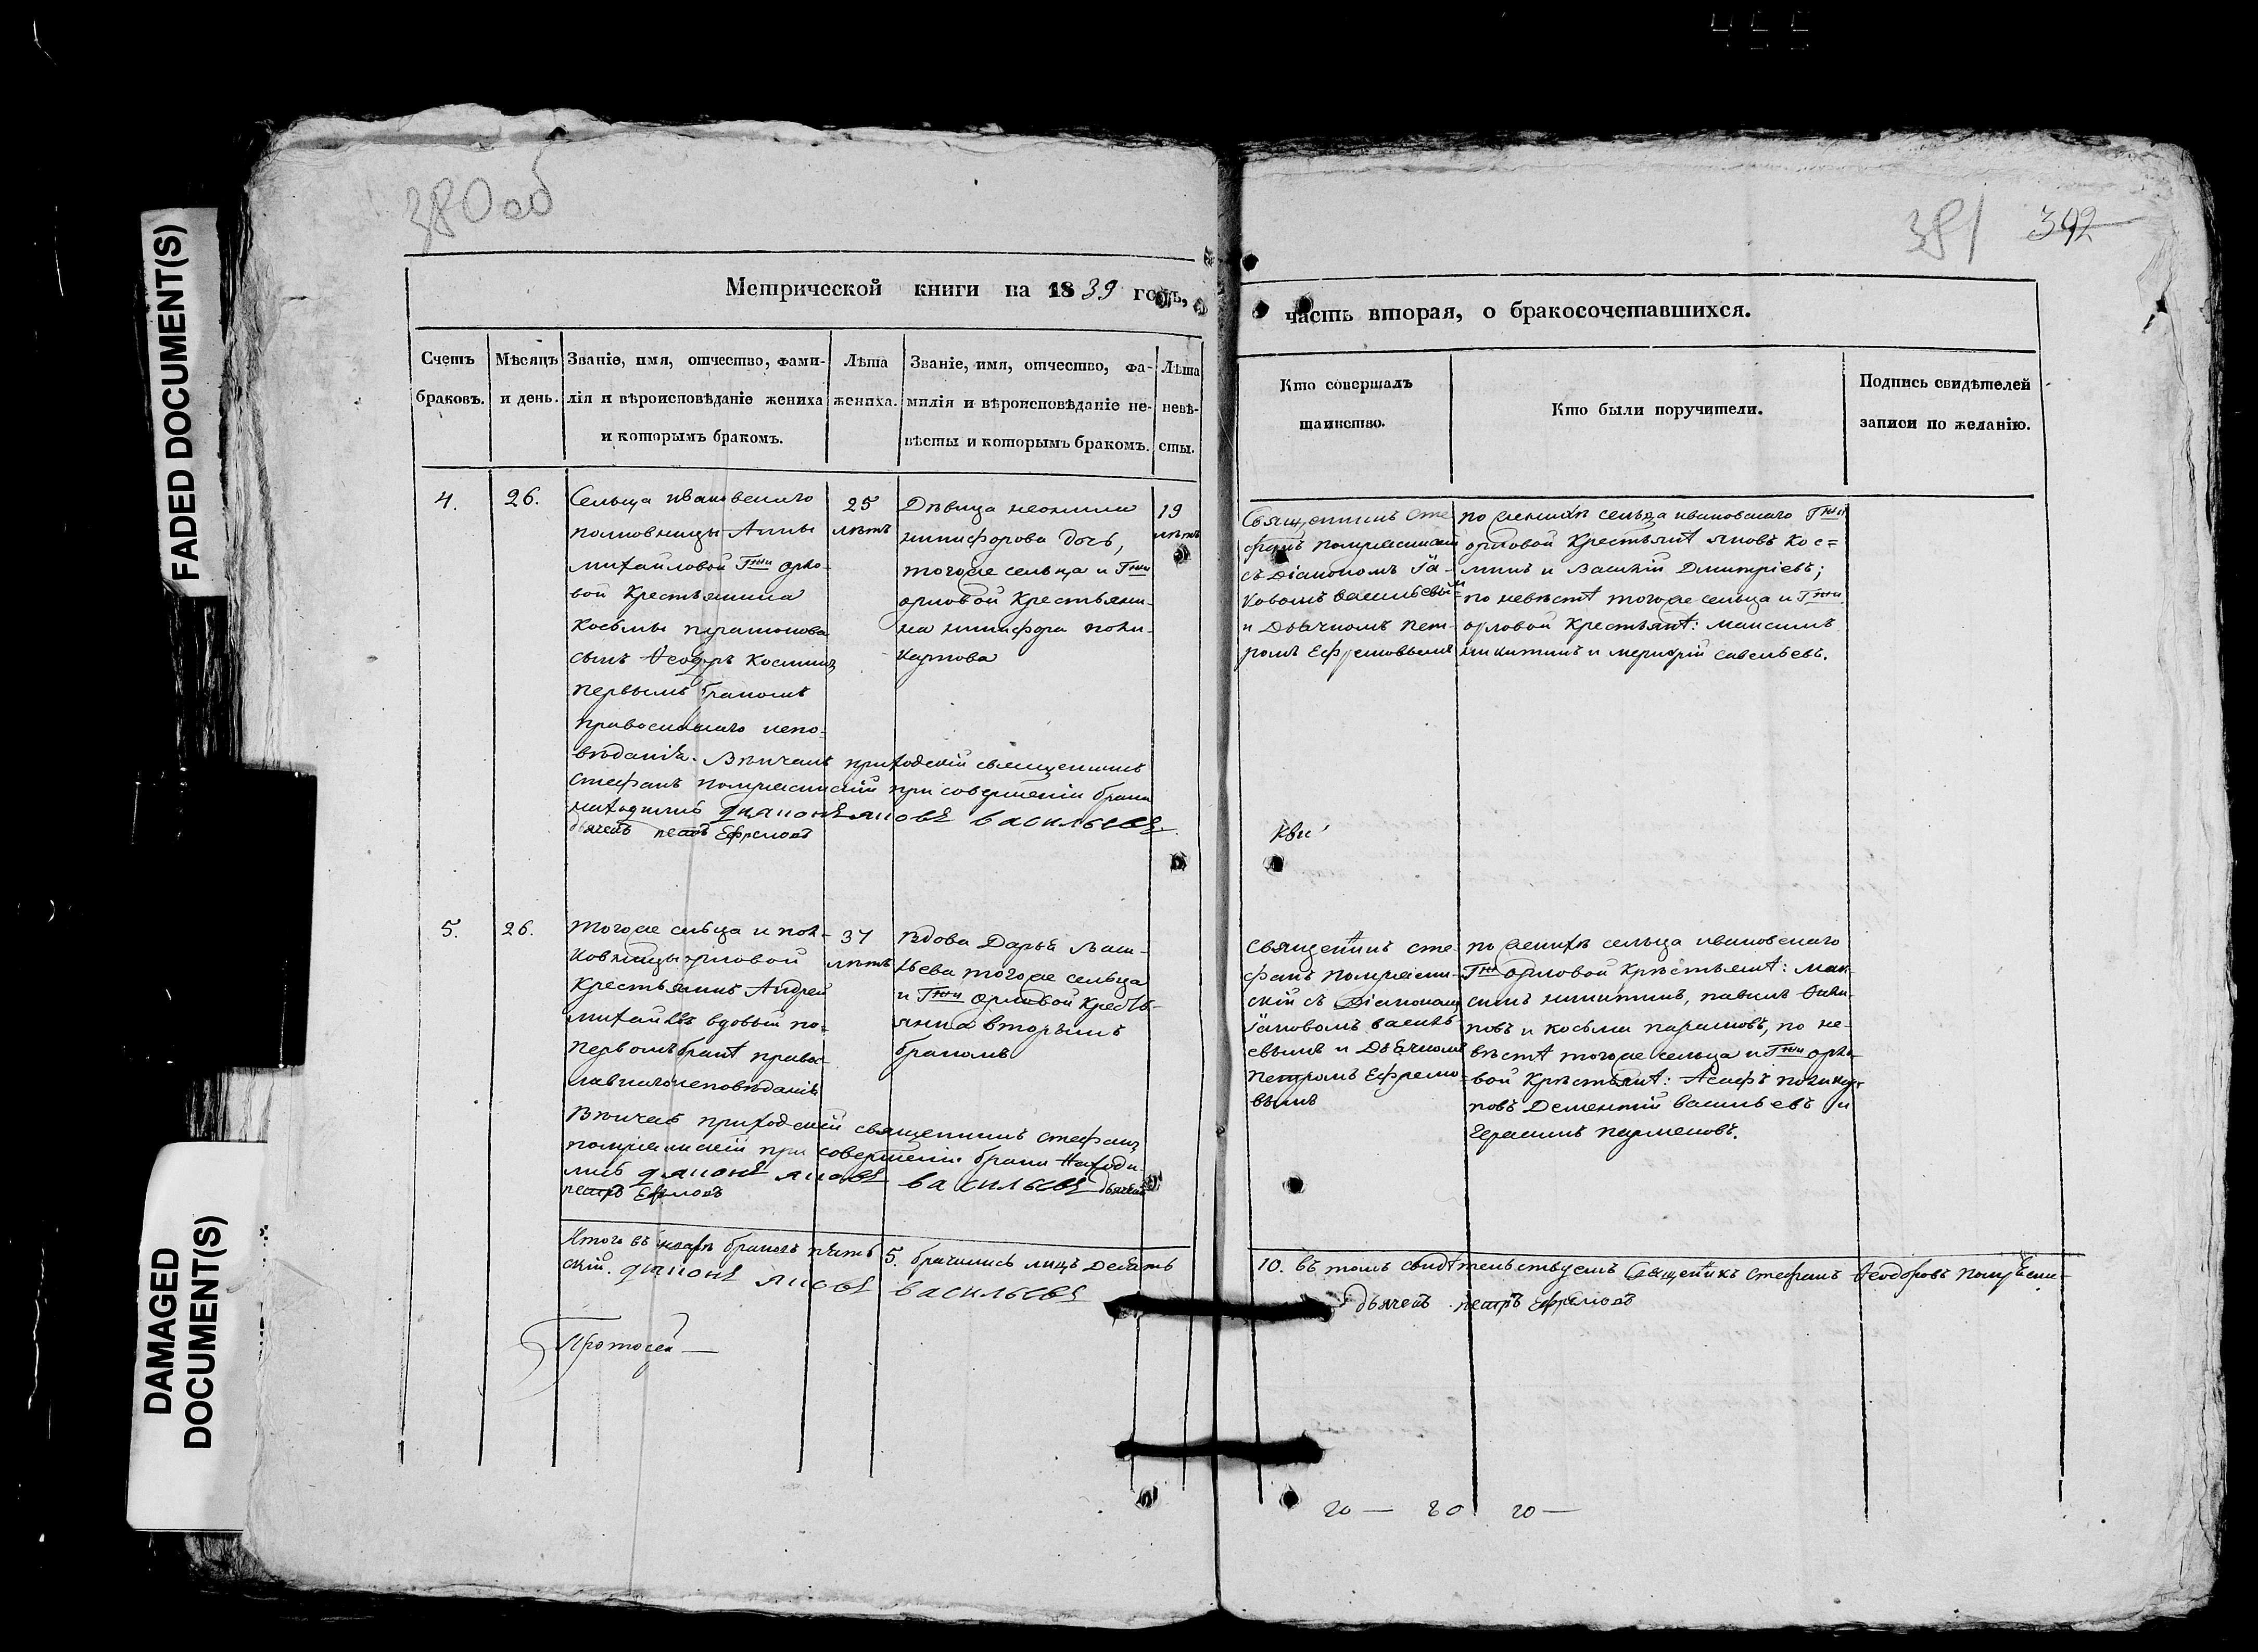 FADED DOCUMENT(S)
DAMAGED
DOCUMENT(S)
380 об
381 392
Метрической книги на 1839 годъ,
часть вторая, о бракосочетавшихся.
Счетъ
браковъ.
Мѣсяцъ
и день.
Званіе, имя, отчество, фами-
лія и вѣроисповѣданіе жениха
и которымъ бракомъ.
Лѣта
жениха.
Званіе, имя, отчество, фа-
милія и вѣроисповѣданіе не-
вѣсты и которымъ бракомъ.
Лѣта
невѣ-
сты.
Кто совершалъ
таинство.
Кто были поручители.
Подпись свидѣтелей
записи по желанію.
4.
26.
Сельца ивановскаго
полковницы Анны
михайловой Гжи орло-
вой Крестьянина
Косьмы
сынъ Ѳеодоръ Косминъ
первымъ бракомъ
православнаго испо-
вѣданія. Вѣнчалъ приходскій священникъ
стефанъ при совершеніи брака
находились діяконъ яковъ васильевъ
дьячекъ петръ Ефремовъ
25
лѣтъ
Дѣвица неонила
никифорова дочь,
тогоже сельца и Гжи
орловой Крестьяни-
на никифора поли-
карпова
19
лѣтъ
Священникъ сте-
фанъ
съ Діакономъ Іа-
ковомъ васильевымъ
и Дьячкомъ пет-
ромъ Ефремовымъ
по женихѣ сельца ивановскаго Гжи
орловой Крестьянѣ яковъ Кос=
минъ и Василій Димитріевъ;
по невѣстѣ тогоже сельца и Гжи
орловой Крестьянѣ: максимъ
никитинъ и меркурій савельевъ.
5.
26.
тогоже сельца и пол-
ковницы орловой
Крестьянинъ Андрей
михайловъ вдовый по-
первомъ бракѣ право-
славнаго исповѣданія
Вѣнчалъ приходскій священникъ стефанъ
при совершеніи брака Находи-
лись діяконъ яковъ васильевъ дьячекъ
петръ Ефремовъ
37
лѣтъ
Вдова Дарья Васи-
льева тогоже сельца
и Гжи орловой Кресть-
янка вторымъ
бракомъ
священникъ сте-
фанъ
скій съ Діакономъ
Іаковомъ василь-
евымъ и Дьячкомъ
петромъ Ефремо-
вымъ
по женихѣ сельца ивановскаго
Гжи орловой Крестьянѣ: мак-
симъ никитинъ, павелъ
и косьма по не-
вѣстѣ тогоже сельца и Гжи орло-
вой Крестьянѣ: поликар-
повъ Дементій васильевъ и
Герасимъ парменовъ.
Итого въ браковъ пять 5. брачились лицъ десять
10. въ томъ свидѣтельствуемъ Священникъ стефанъ Ѳеодоровъ
скій. діяконъ яковъ васильевъ
дьячекъ петръ Ефремовъ